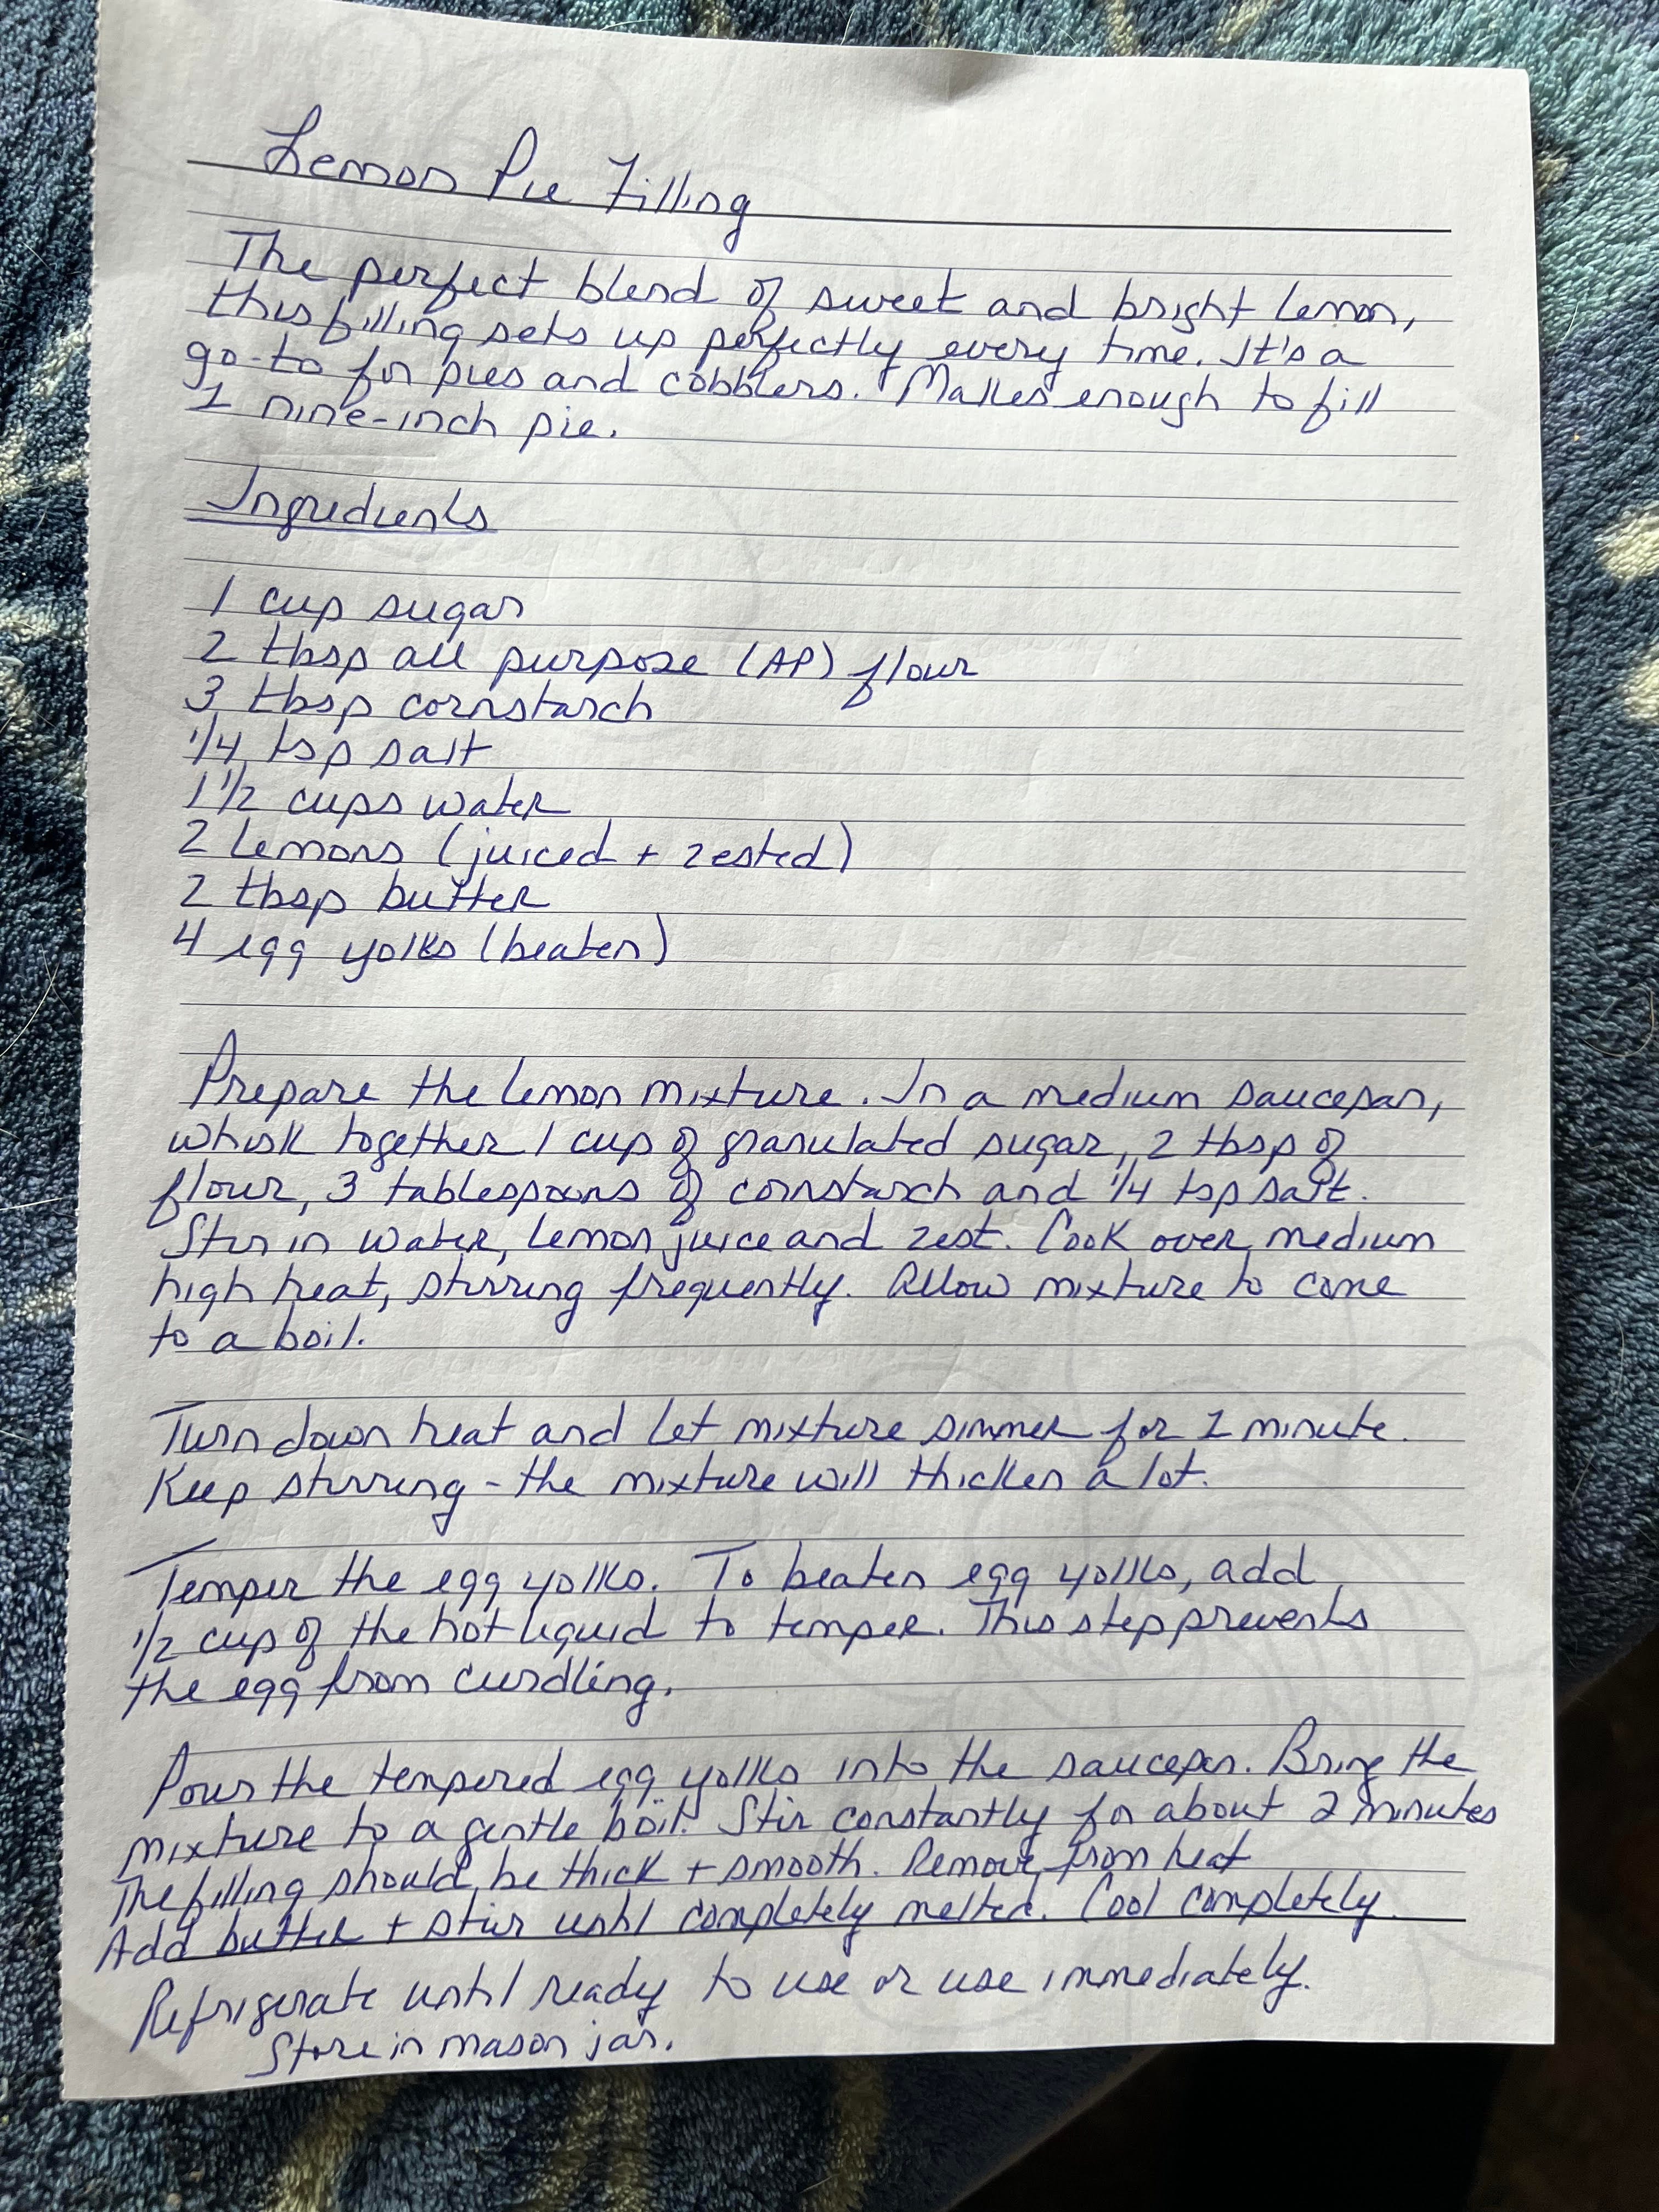 Lemon Pie Filling
The perfect blend of sweet and bright lemon,
this filling sets up perfectly every time. It's a
go-to for pies and cobblers. Makes enough to fill
1 nine-inch pie.
Ingredients
1 cup sugar
2 tbsp all purpose (AP) flour
3 tbsp cornstarch
1/4 tsp salt
1 1/2 cups water
2 lemons (juiced + zested)
2 tbsp butter
4 egg yolks (beaten)
Prepare the lemon mixture. In a medium saucepan,
whisk together 1 cup of granulated sugar, 2 tbsp of
flour, 3 tablespoons of cornstarch and 1/4 tsp salt.
Stir in water, lemon juice and zest. Cook over medium
high heat, stirring frequently. Allow mixture to come
to a boil.
Turn down heat and let mixture simmer for 1 minute.
Keep stirring - the mixture will thicken a lot.
Temper the egg yolks. To beaten egg yolks, add
1/2 cup of the hot liquid to temper. This step prevents
the egg from curdling.
Pour the tempered egg yolks into the saucepan. Bring the
mixture to a gentle boil. Stir constantly for about 2 minutes
The filling should be thick + smooth. Remove from heat
Add butter + stir until completely melted. Cool completely.
Refrigerate until ready to use or use immediately.
Store in mason jar.